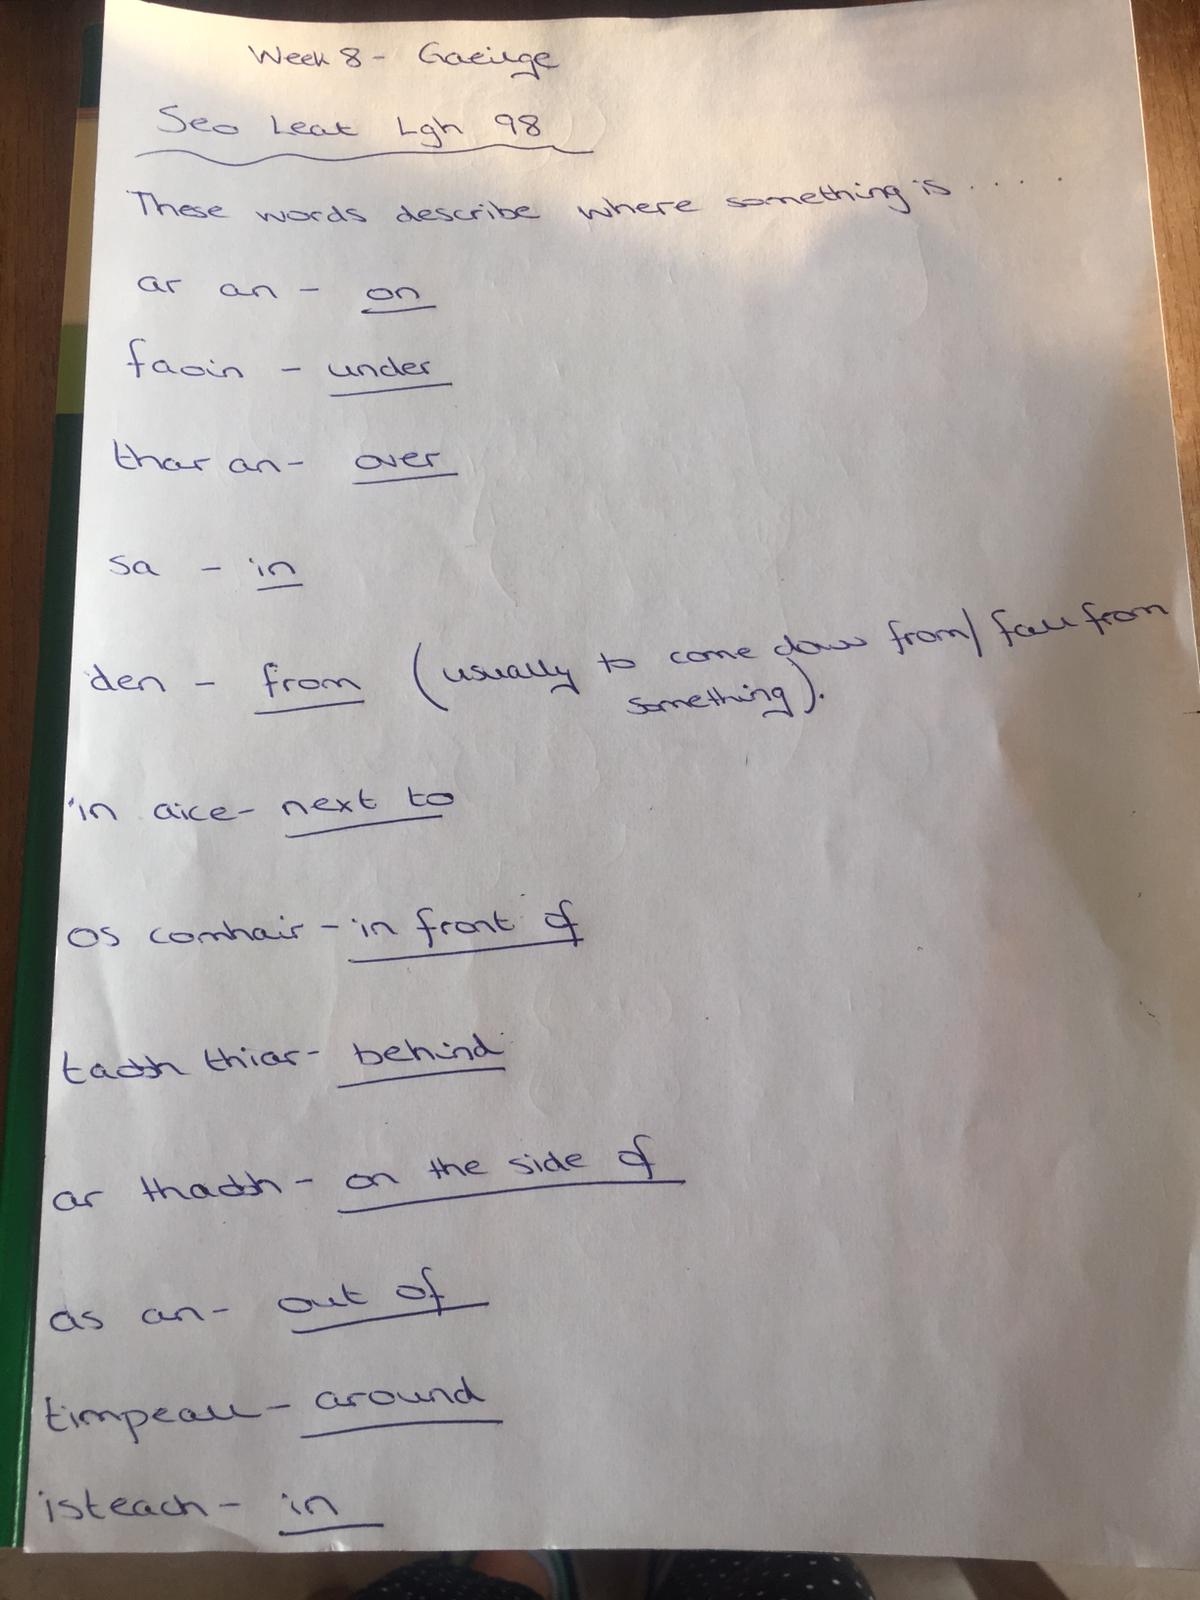 Week 8 - Gaeilge
Seo Leat Lgh 98
These words describe where something is .....
ar an - on
faoin - under
thar an - over
sa - in
den - from (usually to come down from/ fall from
something).
in aice - next to
os comhair - in front of
taobh thiar - behind
ar thaobh - on the side of
as an - out of
timpeall - around
isteach - in